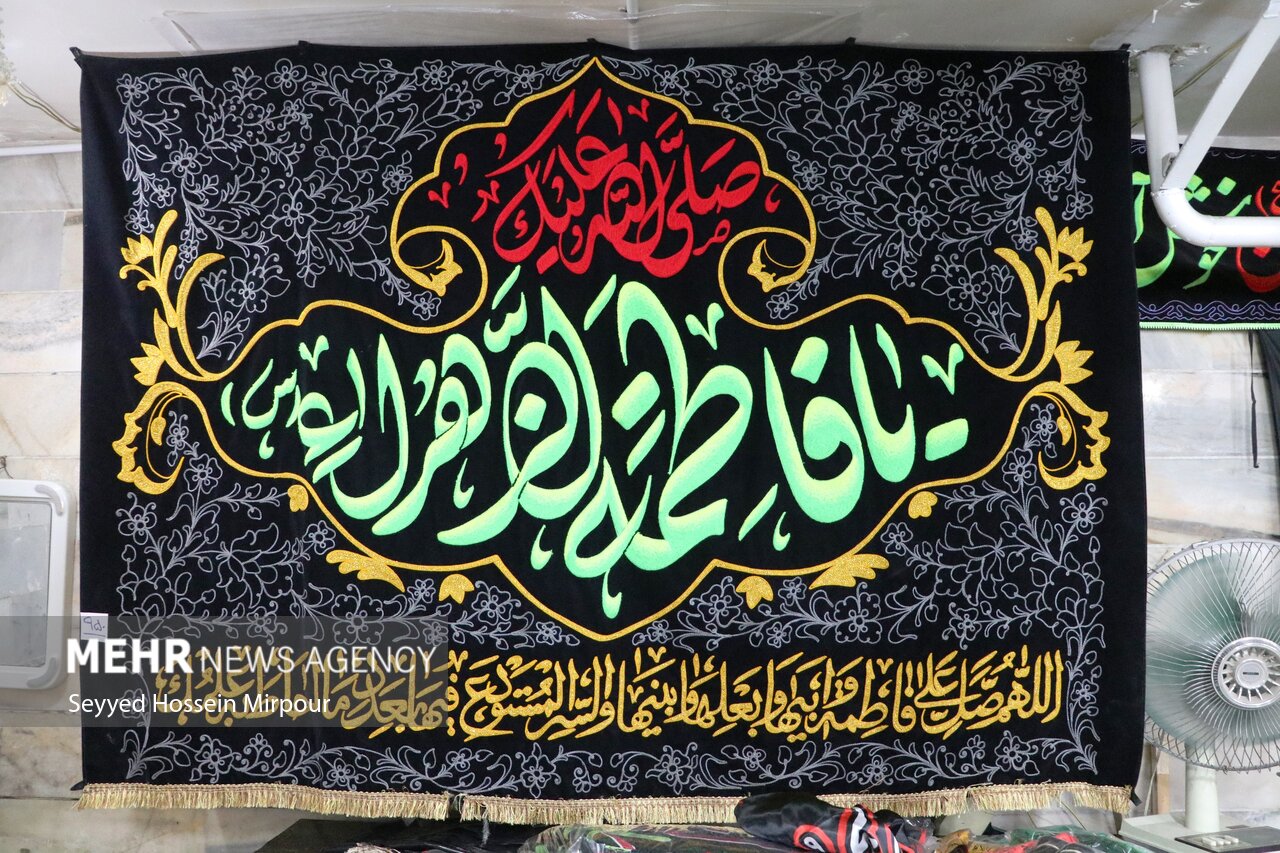 صَلَّی اللّٰهُ عَلَیْكِ
یا فاطِمَةُ الزَّهْراء (س)
اللّهُمَّ صَلِّ عَلی فاطِمَةَ وَ اَبیها وَ بَعْلِها وَ بَنیها وَ السِّرِّ الْمُسْتَوْدَعِ فیها بِعَدَدِ ما اَحاطَ بِهِ عِلْمُكَ
۹۵۰
MEHR NEWS AGENCY
Seyyed Hossein Mirpour